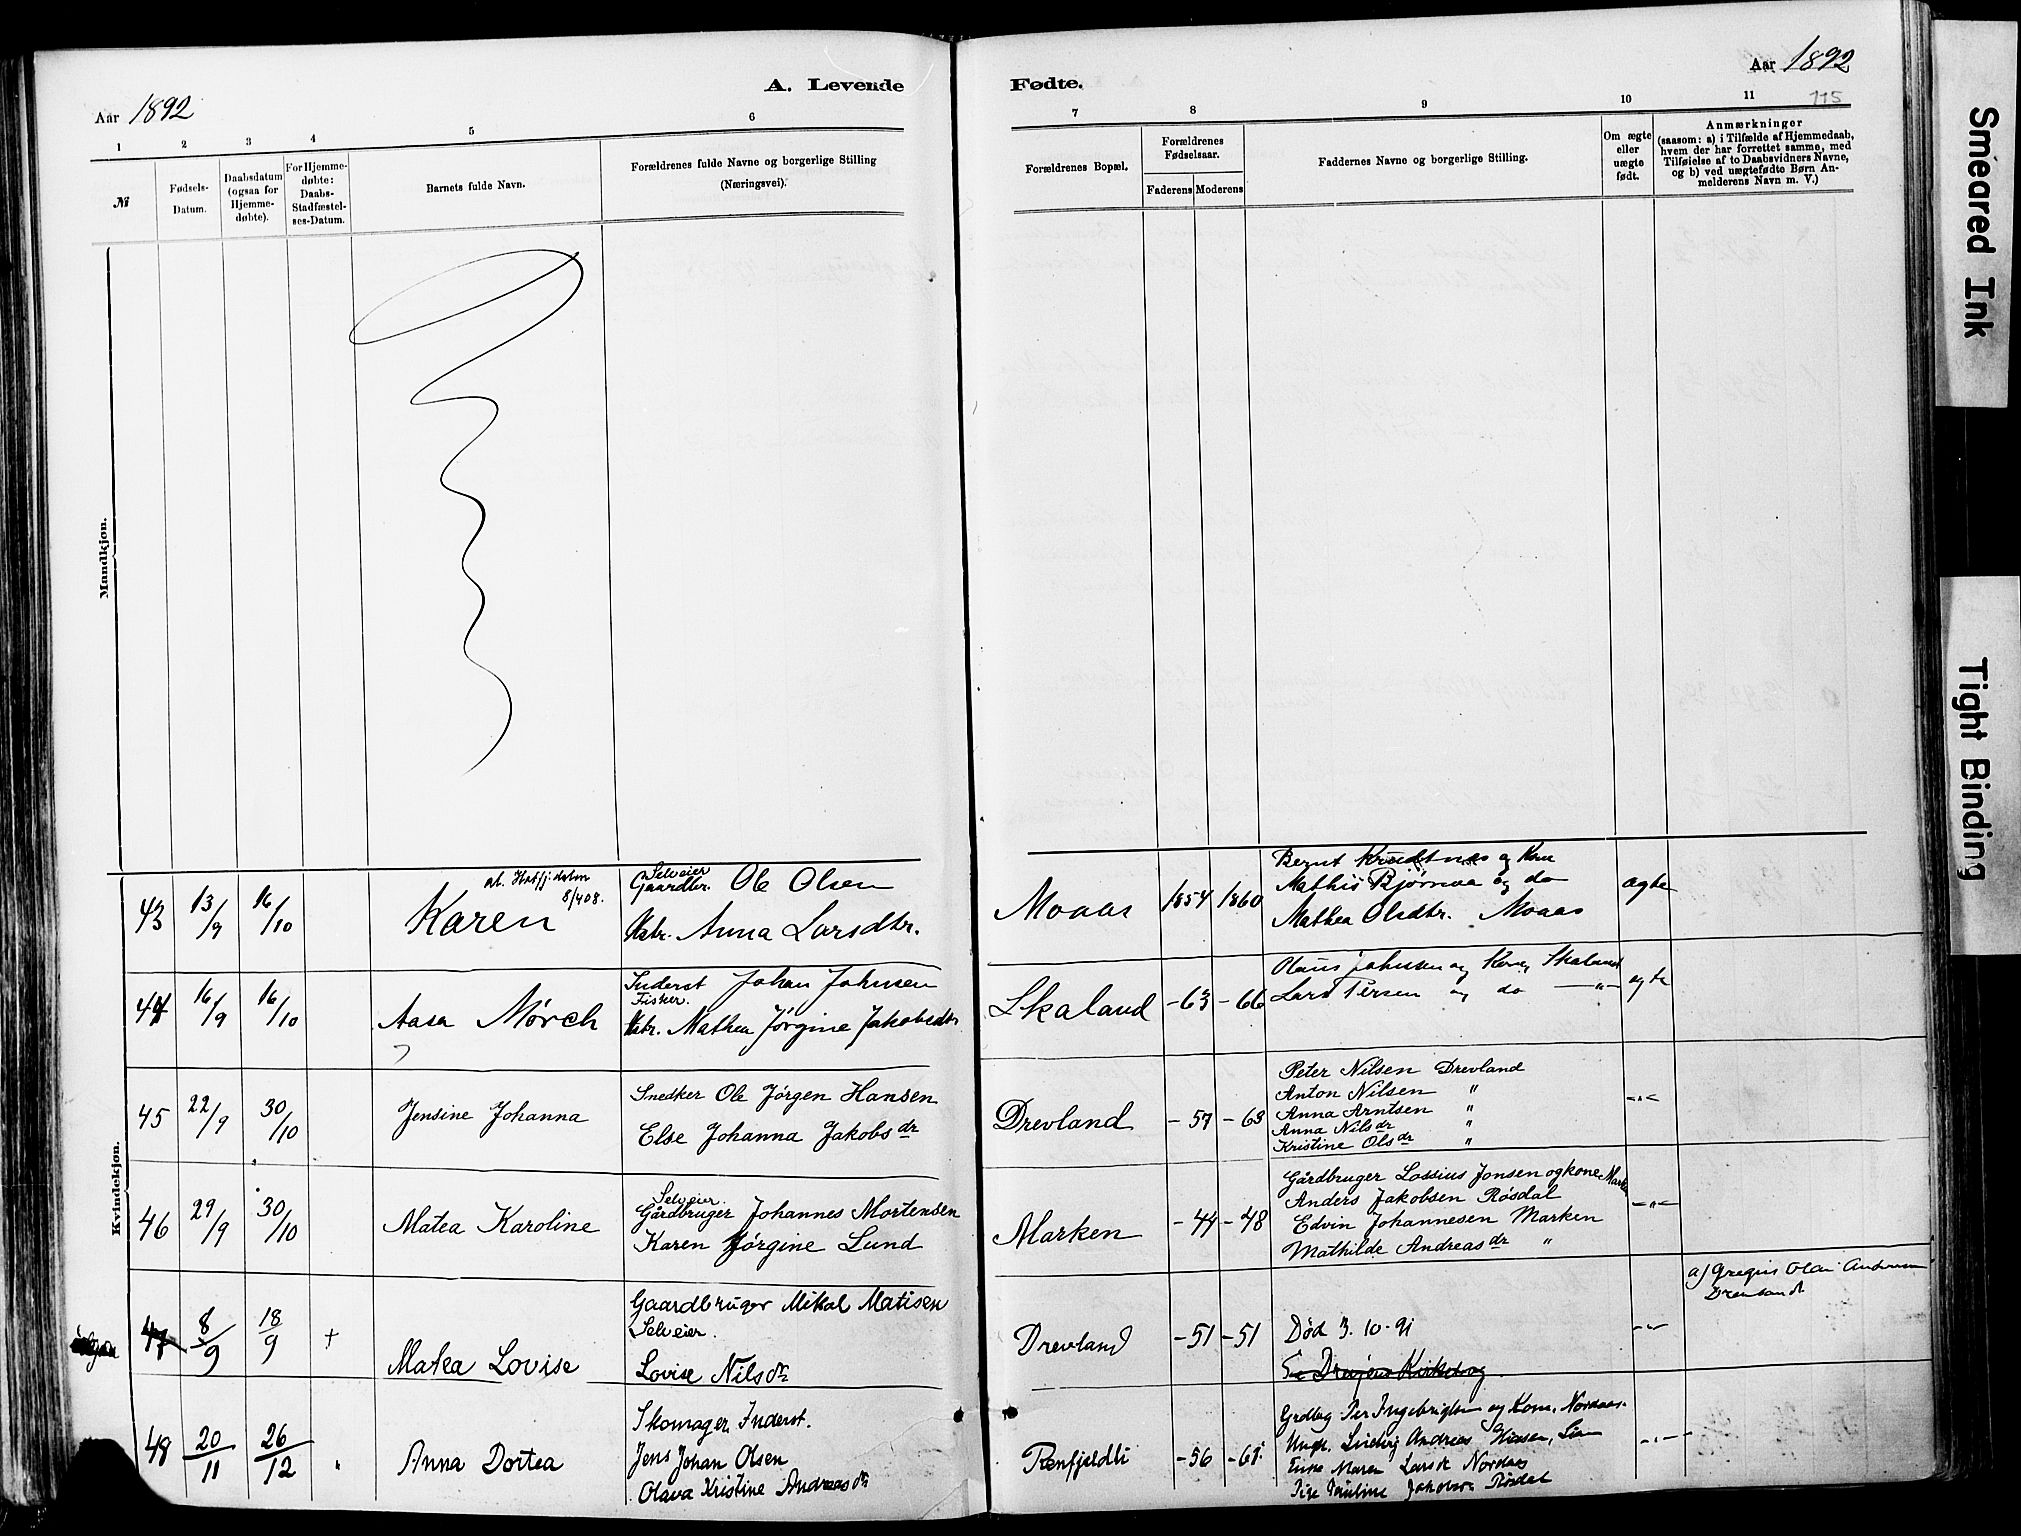 A. Levende
Fødte.
Aar 1892
Aar 1892
115
1 2 3 4 5 6
7 8 9 10 11
№
Fødsels-
Datum.
Daabsdatum
(ogsaa for
Hjemme-
døbte).
For Hjemme-
døbte:
Daabs-
Stadfæstel-
ses-Datum.
Barnets fulde Navn.
Forældrenes fulde Navne og borgerlige Stilling
(Næringsvei).
Forældrenes Bopæl.
Forældrenes
Fødselsaar.
Faderens Moderens
Faddernes Navne og borgerlige Stilling.
Om ægte
eller
uægte
født.
Anmærkninger
(saasom: a) i Tilfælde af Hjemmedaab,
hvem der har forrettet samme, med
Tilføielse af to Daabsvidners Navne,
og b) ved uægtefødte Børn An-
melderens Navn m. V.)
Mandkjøn.
Kvindekjøn.
43 13/9 16/10
at. Hatfjelddalen
8/408.
Karen
Selveier
Gaardbr. Ole Olsen
Hstr. Anna Larsdtr.
Moaas 1854 1860
Bernt Krudtnes og Kone
Mathis Bjørnaa og do
Mathea Olsdtr. Moaas
ægte
44 16/9 16/10
Aasa Mørch
Inderst Johan Johnsen
Fisker.
Hstr. Mathea Jørgine Jakobsdtr
Skaland -63 -66
Olaus Johnsen og Kone, Skaland
Lars Persen og do -"-
ægte
45 22/9 30/10
Jensine Johanna
Snedker Ole Jørgen Hansen
Else Johanna Jakobsdr
Drevland -57 -63
Peter Nilsen Drevland
Anton Nilsen "
Anna Arntsen "
Anna Nilsdr "
Kristine Olsdr "
-"-
46 29/9 30/10
Matea Karoline
Selveier.
Gårdbruger Johannes Mortensen
Karen Jørgine Lund
Marken -44 -48
Gårdbruger Lossius Jonsen og kone Marken
Anders Jakobsen Røsdal
Edvin Johannesen Marken
Mathilde Andreasdr "
-"-
47 8/9 18/9 +
Matea Lovise
Gaardbruger Mikal Matisen
Selveier.
Lovise Nilsdr
Drevland -51 -51
Død 3.10-91
Se Drevjens Kirkebog
-"-
a) Gregus Olai Andersen
48 20/11 26/12 "
Anna Dortea
Skomager, Inderst.
Jens Johan Olsen
Olava Kristine Andreasdr
Renfjeldli -56 -61
Grdbrg Per Ingebrigtsen og Kone, Nordaas.
Ungk. Andreas
Maren Larsdr Nordaas
Pige Pauline Røsdal
-"-
Smeared Ink
Tight Binding